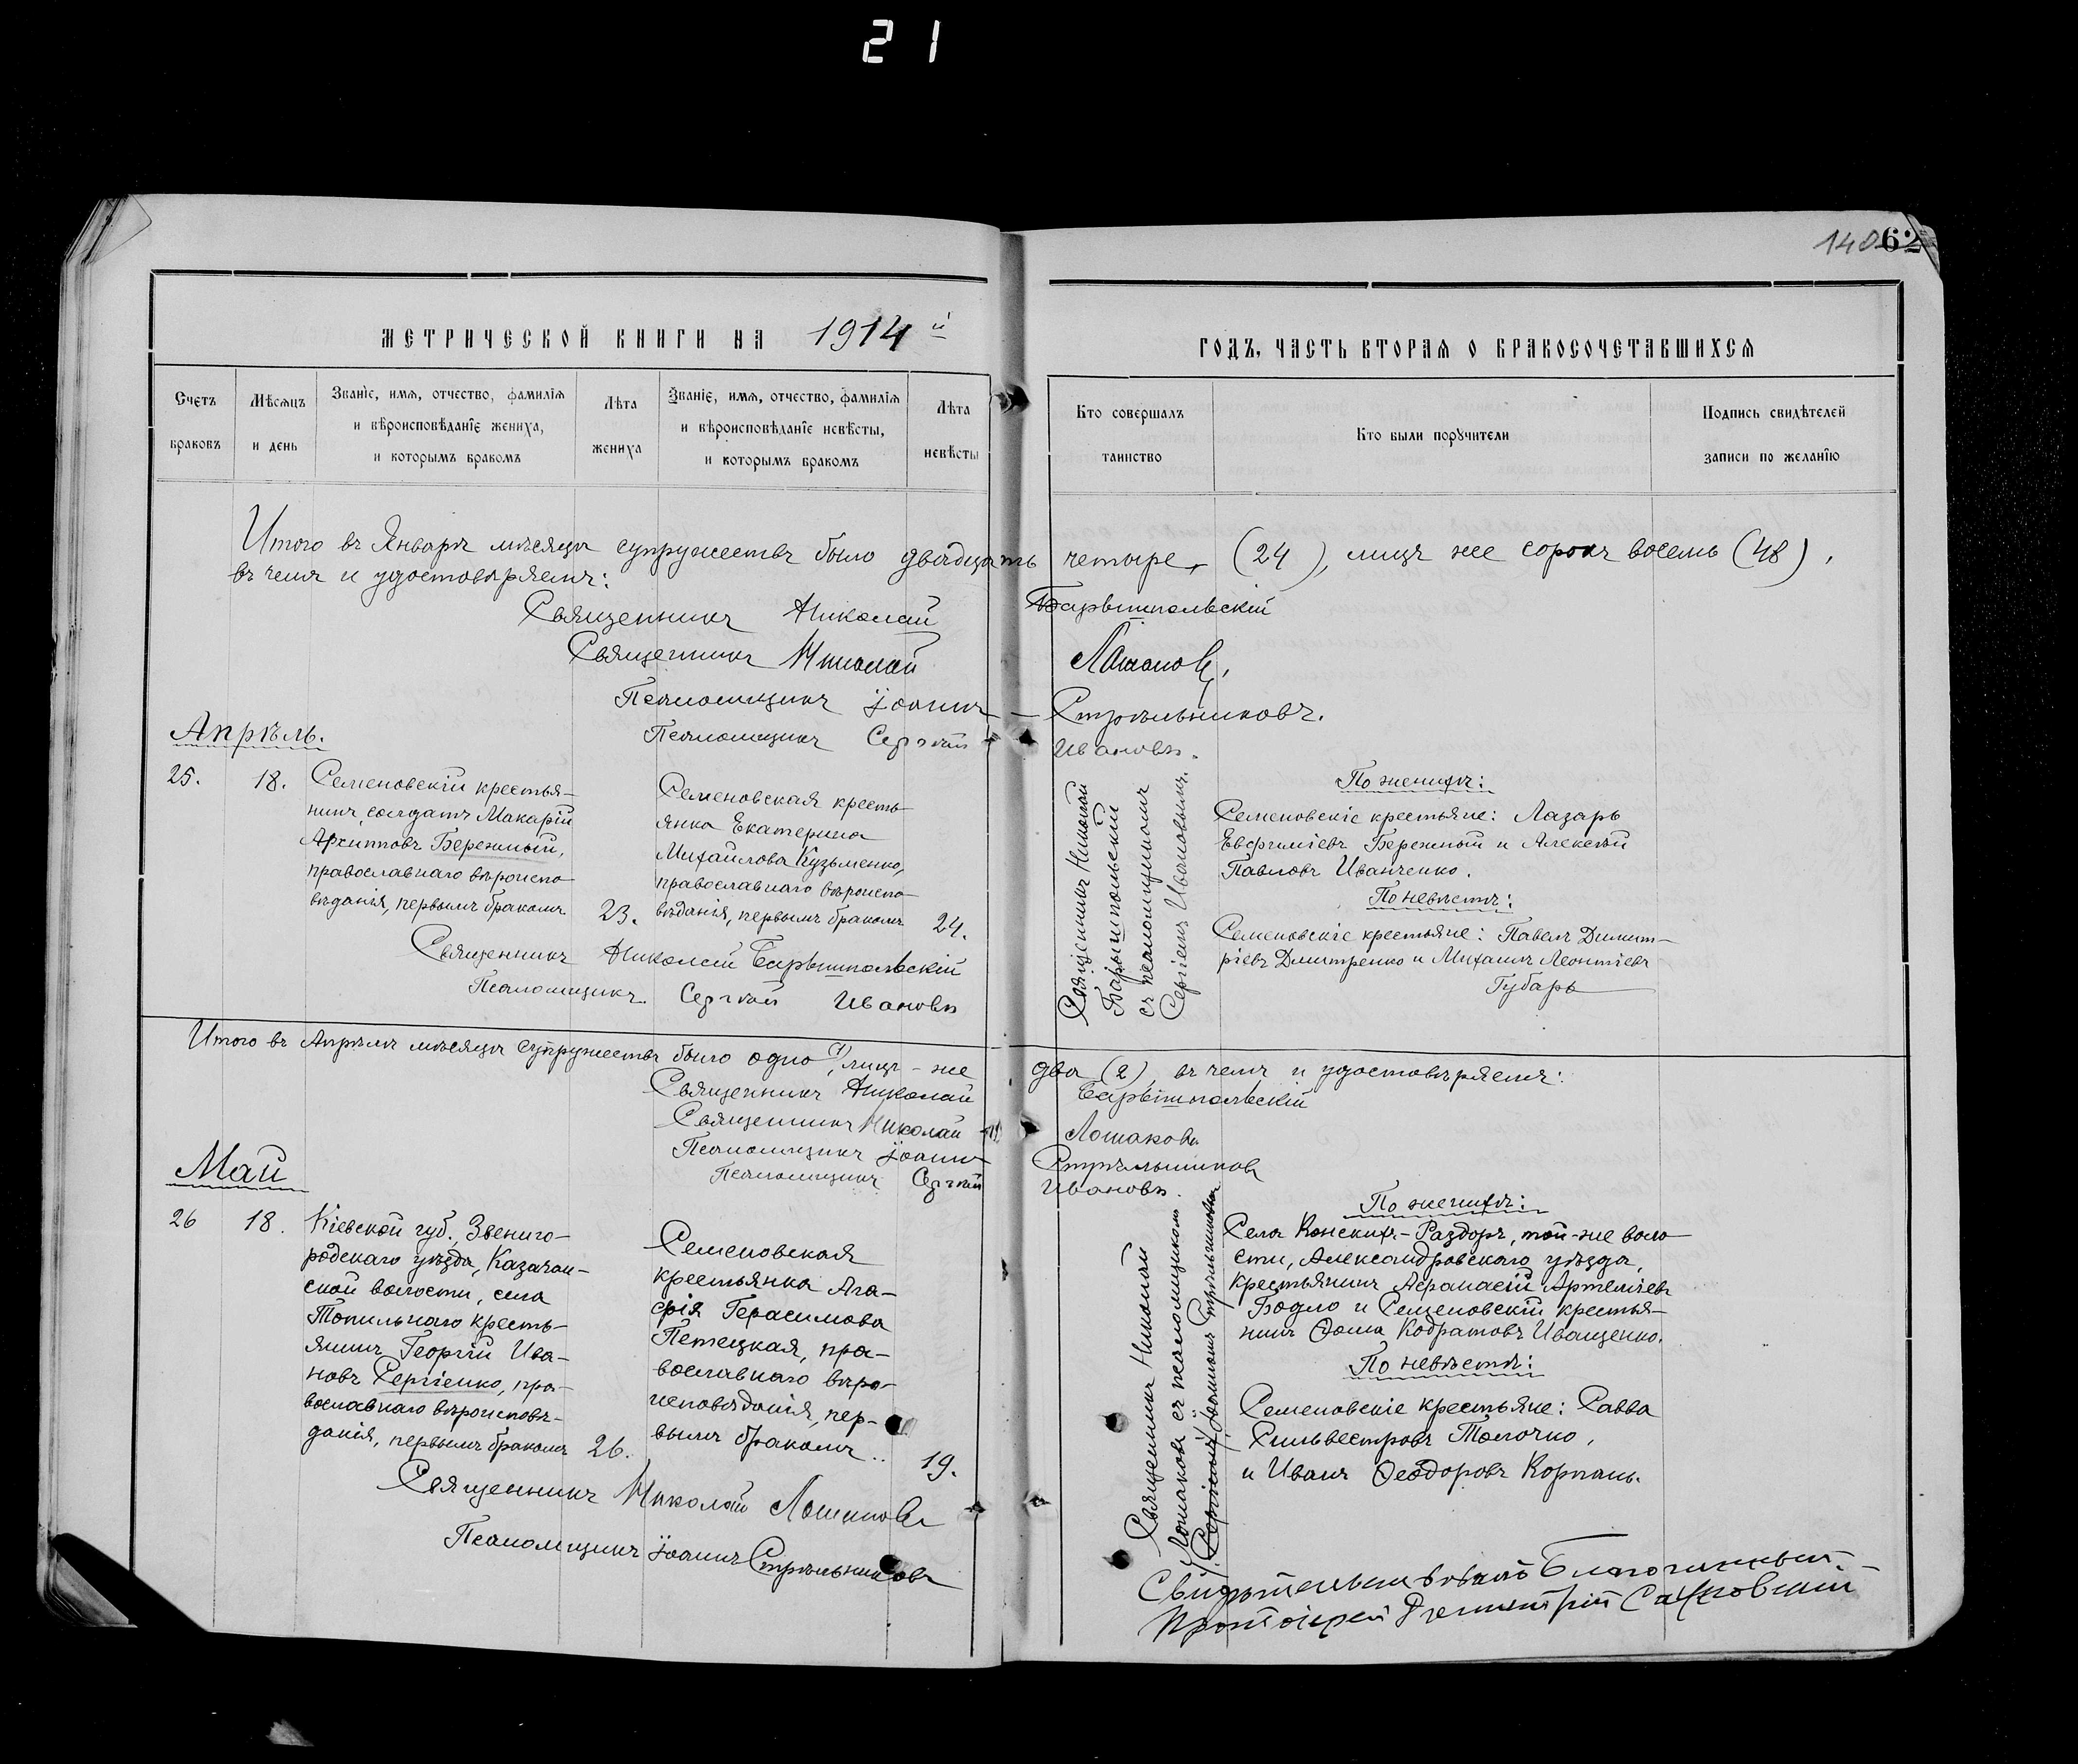 21
140 62
МЕТРИЧЕСКОЙ КНИГИ НА 1914 й
ГОДЪ, ЧАСТЬ ВТОРАЯ О БРАКОСОЧЕТАВШИХСЯ
Счетъ браковъ
Мѣсяцъ и день
Званіе, имя, отчество, фамилія
и вѣроисповѣданіе жениха,
и которымъ бракомъ
Лѣта жениха
Званіе, имя, отчество, фамилія
и вѣроисповѣданіе невѣсты,
и которымъ бракомъ
Лѣта невѣсты
Кто совершалъ
таинство
Кто были поручители
Подпись свидѣтелей
записи по желанію
Итого въ Январѣ мѣсяцѣ супружествъ было двадцать четыре, (24), лицъ же сорокъ восемь (48),
въ чемъ и удостовѣряемъ:
Священникъ Николай Барышпольскій
Священникъ Николай Лошаковъ,
Псаломщикъ Іоаннъ Стрѣльниковъ.
Псаломщикъ Сергѣй Ивановъ.
Апрѣль.
25.
18.
Семеновскій крестья-
нинъ, солдатъ Макарій
Архипповъ Бережный,
православнаго вѣроиспо-
вѣданія, первымъ бракомъ
23.
Семеновская кресть-
янка Екатерина
Михайлова Кузьменко,
православнаго вѣроиспо-
вѣданія, первымъ бракомъ
24.
Священникъ Николай
Барышпольскій
съ псаломщикомъ
Сергіемъ Ивановымъ.
По женихѣ:
Семеновскіе крестьяне: Лазарь
Евфиміевъ Бережный и Алексѣй
Павловъ Иванченко.
По невѣстѣ:
Семеновскіе крестьяне: Павелъ Димит-
ріевъ Дмитренко и Михаилъ Леонтіевъ
Губарь
Священникъ Николай Барышпольскій
Псаломщикъ Сергѣй Ивановъ
Итого въ Апрѣлѣ мѣсяцѣ супружествъ было одно (1), лицъ-же два (2), въ чемъ и удостовѣряемъ:
Священникъ Николай Барышпольскій
Священникъ Николай Лошаковъ
Псаломщикъ Іоаннъ Стрѣльниковъ
Псаломщикъ Сергѣй Ивановъ.
Май
26
18.
Кіевской губ., Звениго-
родскаго уѣзда, Казачан-
ской волости, села
Топильнаго кресть-
янинъ Георгій Ива-
новъ Сергіенко, пра-
вославнаго вѣроисповѣ-
данія, первымъ бракомъ
26.
Семеновская
крестьянка Ага-
фія Герасимова
Петецкая, пра-
вославнаго вѣро-
исповѣданія, пер-
вымъ бракомъ..
19.
Священникъ Николай
Лошаковъ съ псаломщикомъ
Сергіемъ Іоанномъ Стрѣльниковымъ
По женихѣ:
Села Конскихъ-Раздоръ, той-же воло-
сти, Александровскаго уѣзда,
крестьянинъ Аѳанасій Артеміевъ
Бодло и Семеновскій крестья-
нинъ Ѳома Кодратовъ Иващенко.
По невѣстѣ:
Семеновскіе крестьяне: Савва
Сильвестровъ Толочко,
и Иванъ Ѳеодоровъ Корпань.
Священникъ Николай Лошаковъ
Псаломщикъ Іоаннъ Стрѣльниковъ
Свидѣтельствовалъ Благочинный
Протоіерей Димитрій